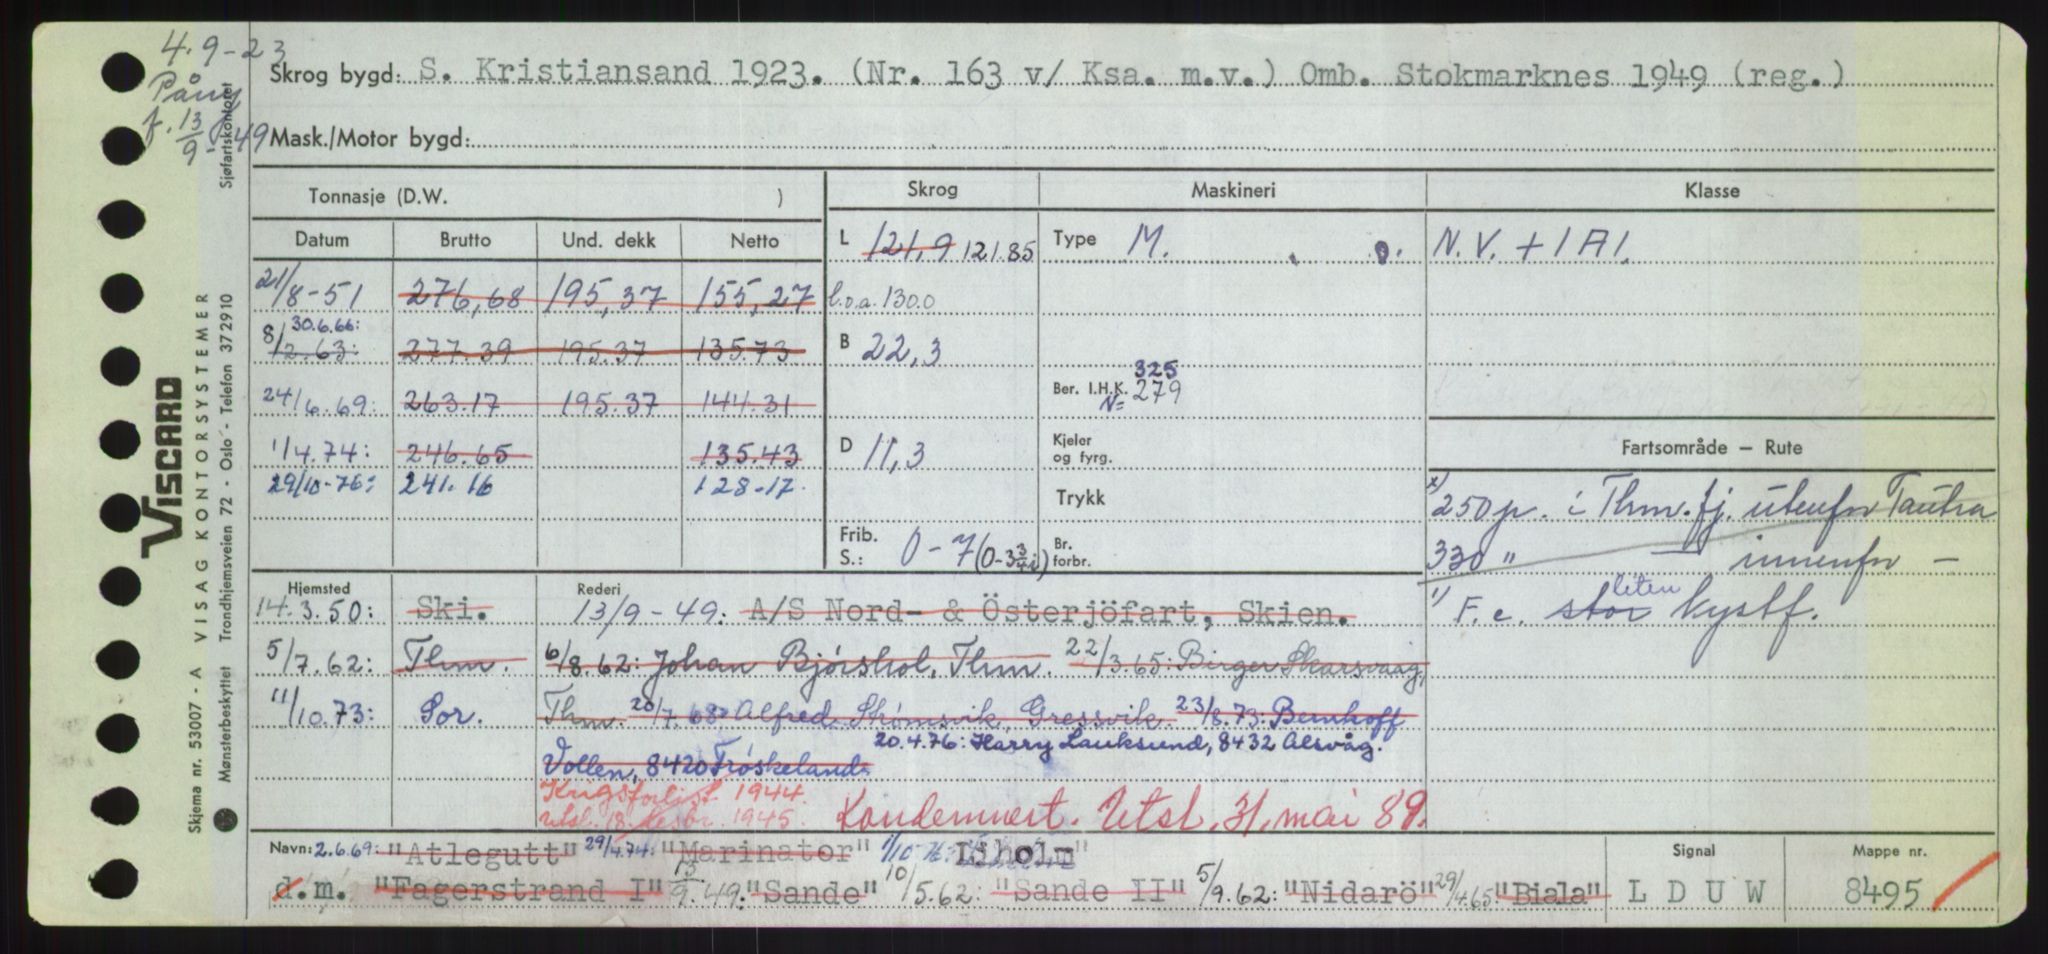 4.9-23
Påny
f. 13/9-49
Skrog bygd: S. Kristiansand 1923. (Nr. 163 v/ Ksa. m.v.) Omb. Stokmarknes 1949 (reg.)
Mask./Motor bygd:
Tonnasje (D.W. )
Skrog
Maskineri
Klasse
Datum Brutto Und. dekk Netto
21/8-51 276,68 195,37 155,27
30.6.66:
8/2.63: 277.39 195.37 135.73
24/6.69: 263.17 195.37 144.31
1/4.74: 246.65 135.43
29/10-76: 241.16 128-17.
L 121,9 121.85
l.o.a. 130.0
B 22,3
D 11,3
Frib. S.: 0-7 (0-3 3/4 i)
Type M.
325
Ber. I.H.K. N= 279
Kjeler og fyrg.
Trykk
Br. forbr.
N.V. + 1A1.
Fartsområde — Rute
x) 250 p. i Thm.fj. utenfor Tautra
330 " — innenfor —
liten
1) F. e. stor kystf.
Hjemsted Rederi
14.3.50: Ski. 13/9-49: A/S Nord- & Österjöfart, Skien.
5/7.62: Thm. 6/8.62: Johan Bjørshol, Thm. 22/3.65: Birger Skarsvaag,
11/10.73: Sor. Thm. 20/7.68: Alfred Strømsvik, Gressvik. 23/8.73: Bernhoff
20.4.76: Harry Lauksund, 8432 Alsvåg.
Vollen, 8420 Frøskeland.
Krigsforlist 1944.
utsl. 18. desbr. 1945. Kondemnert. Utsl. 31. mai 89.
Navn: 2.6.69: "Atlegutt" 29/4.74: "Marinator" 1/10
d.m. "Fagerstrand I" 13/9.49: "Sande" 10/5.62: "Sande II" 5/9.62: "Nidarö" 29/4.65: "Biala"
Signal
LDUW
Mappe nr.
8495
VISCARD
Skjema nr. 53007 - A VISAG KONTORSYSTEMER
Mønsterbeskyttet Trondhjemsveien 72 - Oslo - Telefon 372910
Sjøfartskontoret